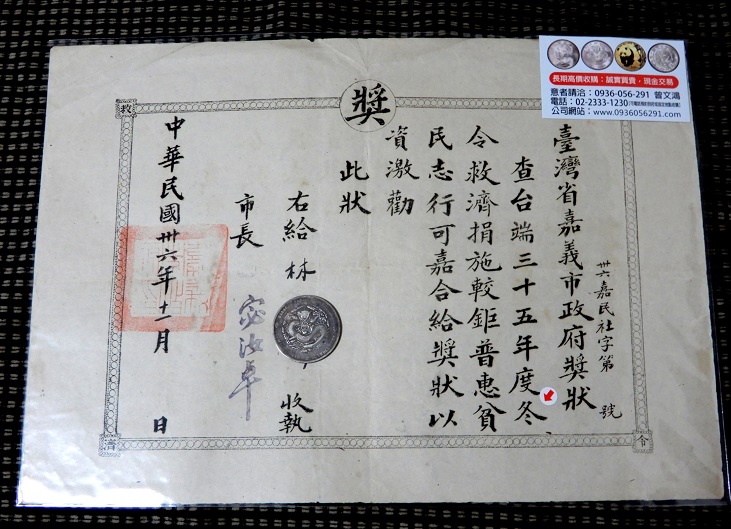 長期高價收購：誠實買賣，現金交易
意者請洽：0936-056-291 曾文鴻
電話：02-2333-1230
公司網站：www.0936056291.com
獎
救
令
臺灣省嘉義市政府獎狀
卅六嘉民社字第 號
查台端三十五年度冬
令救濟捐施較鉅普惠貧
民志行可嘉合給獎狀以
資激勸
此狀
右給 林 收執
市長 宓汝卓
中華民國卅六年十一月 日